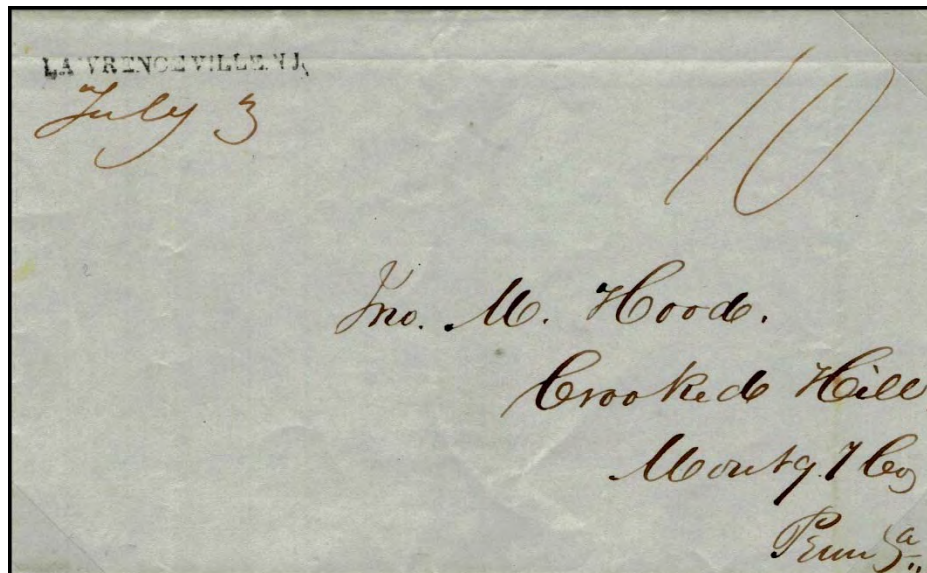 LAWRENCEVILLE N J,
July 3
10
Jno. M. Hood.
Crooked Hill
Montg.y Co,
Penn a